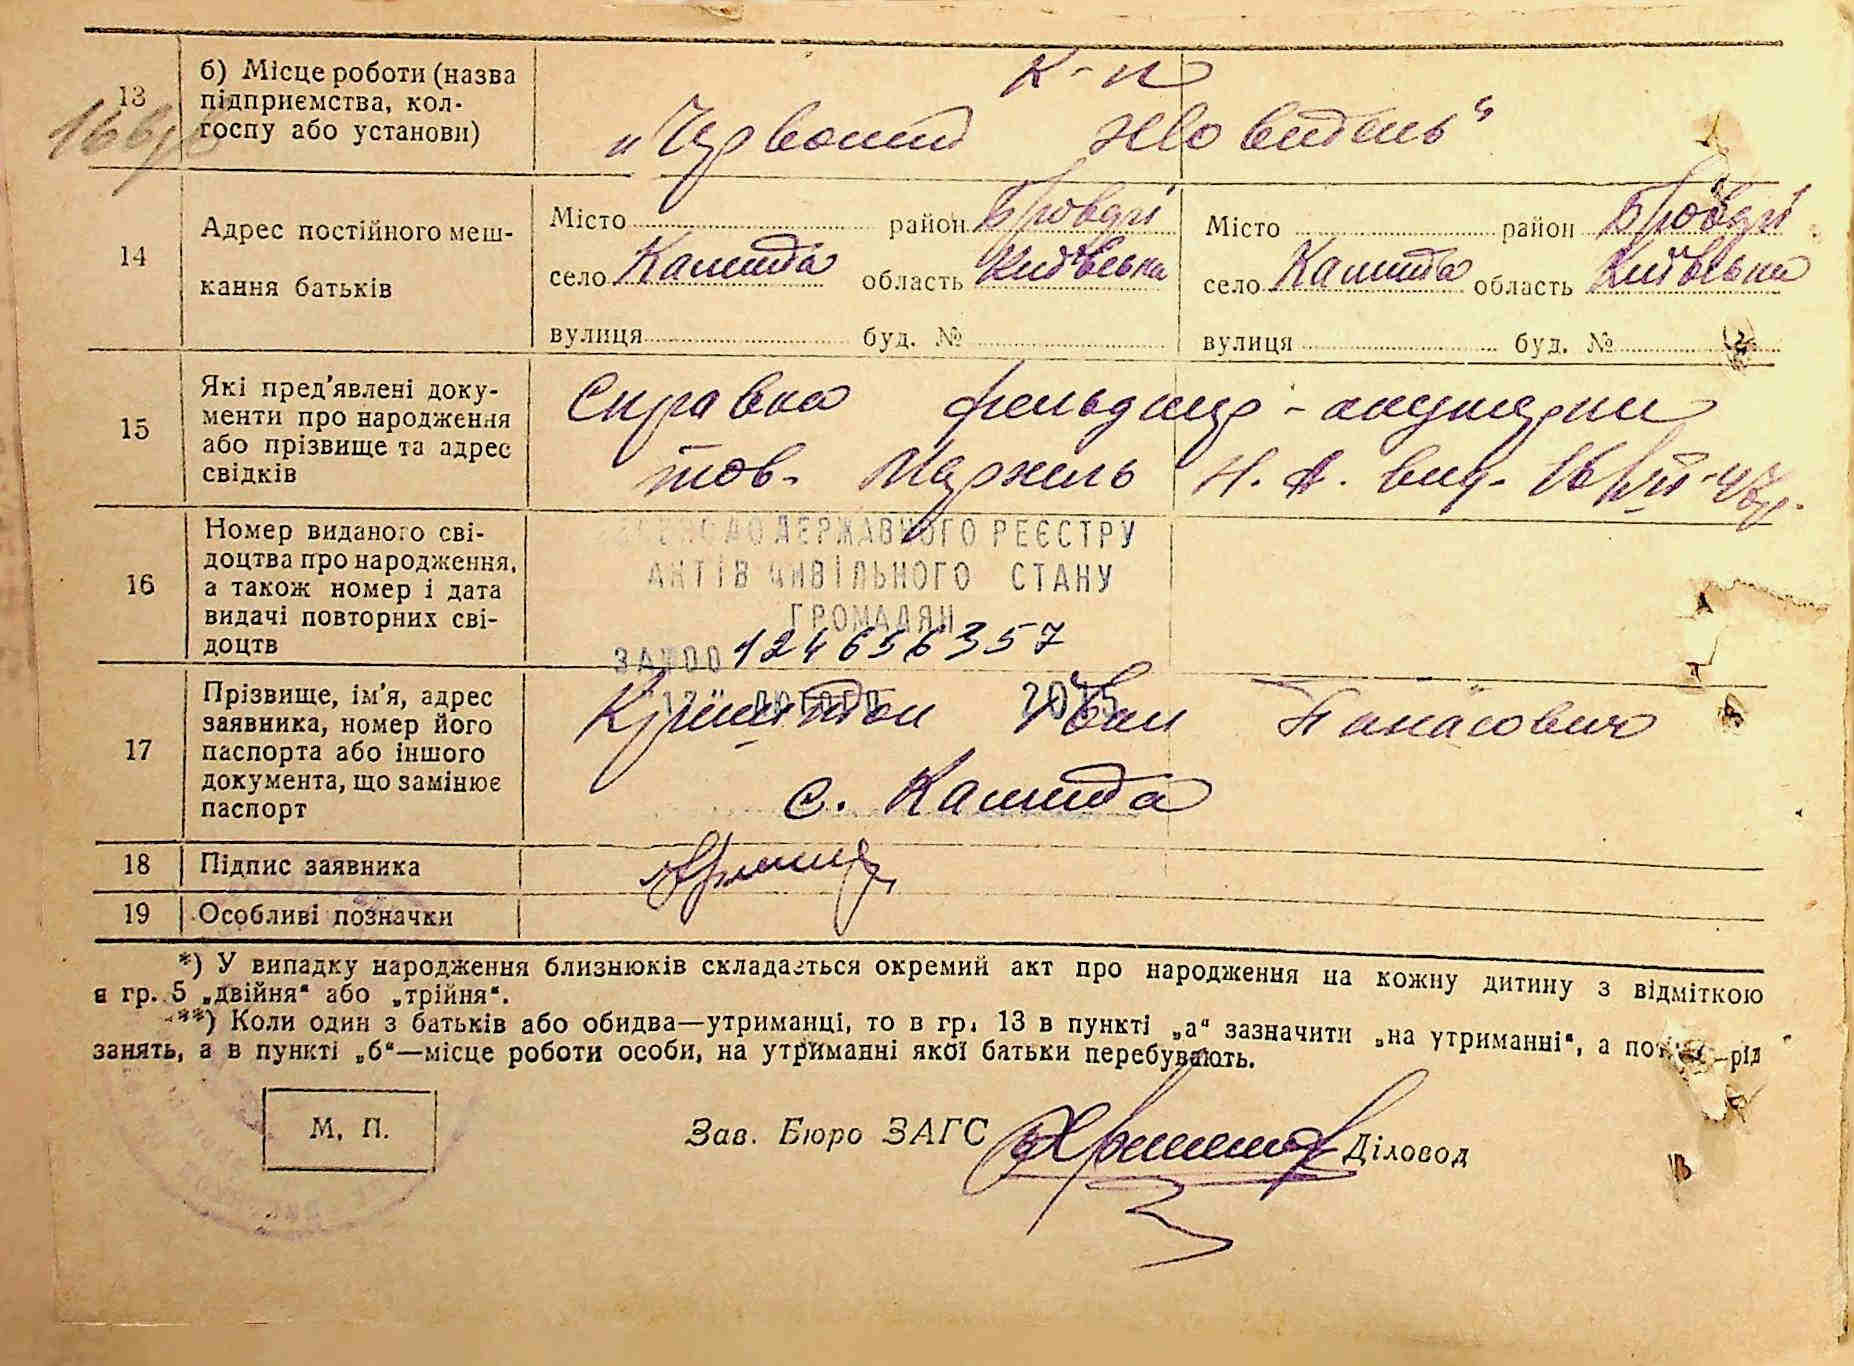 13 б) Місце роботи (назва підприємства, кол-
госпу або установи)
К-п
„Червоний
14 Адрес постійного меш-
кання батьків
Місто район Броварі
село Калита область Київська
вулиця буд. №
Місто район Броварі
село Калита область Київська
вулиця буд. №
15 Які пред'явлені доку-
менти про народження
або прізвище та адрес
свідків
Справка фельдшер-акушерки
тов. Н. А. вид. 16/VII-47р.
16 Номер виданого сві-
доцтва про народження,
а також номер і дата
видачі повторних сві-
доцтв
ДО ДЕРЖАВНОГО РЕЄСТРУ
АКТІВ ЦИВІЛЬНОГО СТАНУ
ГРОМАДЯН
124656357
2015
17 Прізвище, ім'я, адрес
заявника, номер його
паспорта або іншого
документа, що замінює
паспорт
Іван Панасович
с. Калита
18 Підпис заявника
19 Особливі позначки
*) У випадку народження близнюків складається окремий акт про народження на кожну дитину з відміткою
в гр. 5 „двійня“ або „трійня“.
**) Коли один з батьків або обидва—утриманці, то в гр. 13 в пункті „а“ зазначити „на утриманні“, а рід
занять, а в пункті „б“—місце роботи особи, на утриманні якої батьки перебувають.
М. П.
Зав. Бюро ЗАГС Діловод